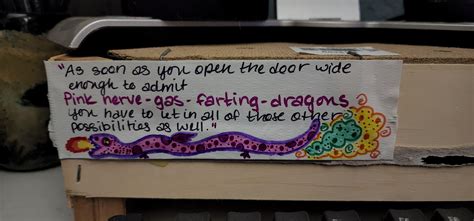 "As soon as you open the door wide
enough to admit
Pink nerve-gas-farting-dragons
you have to let in all of those other
possibilities as well."